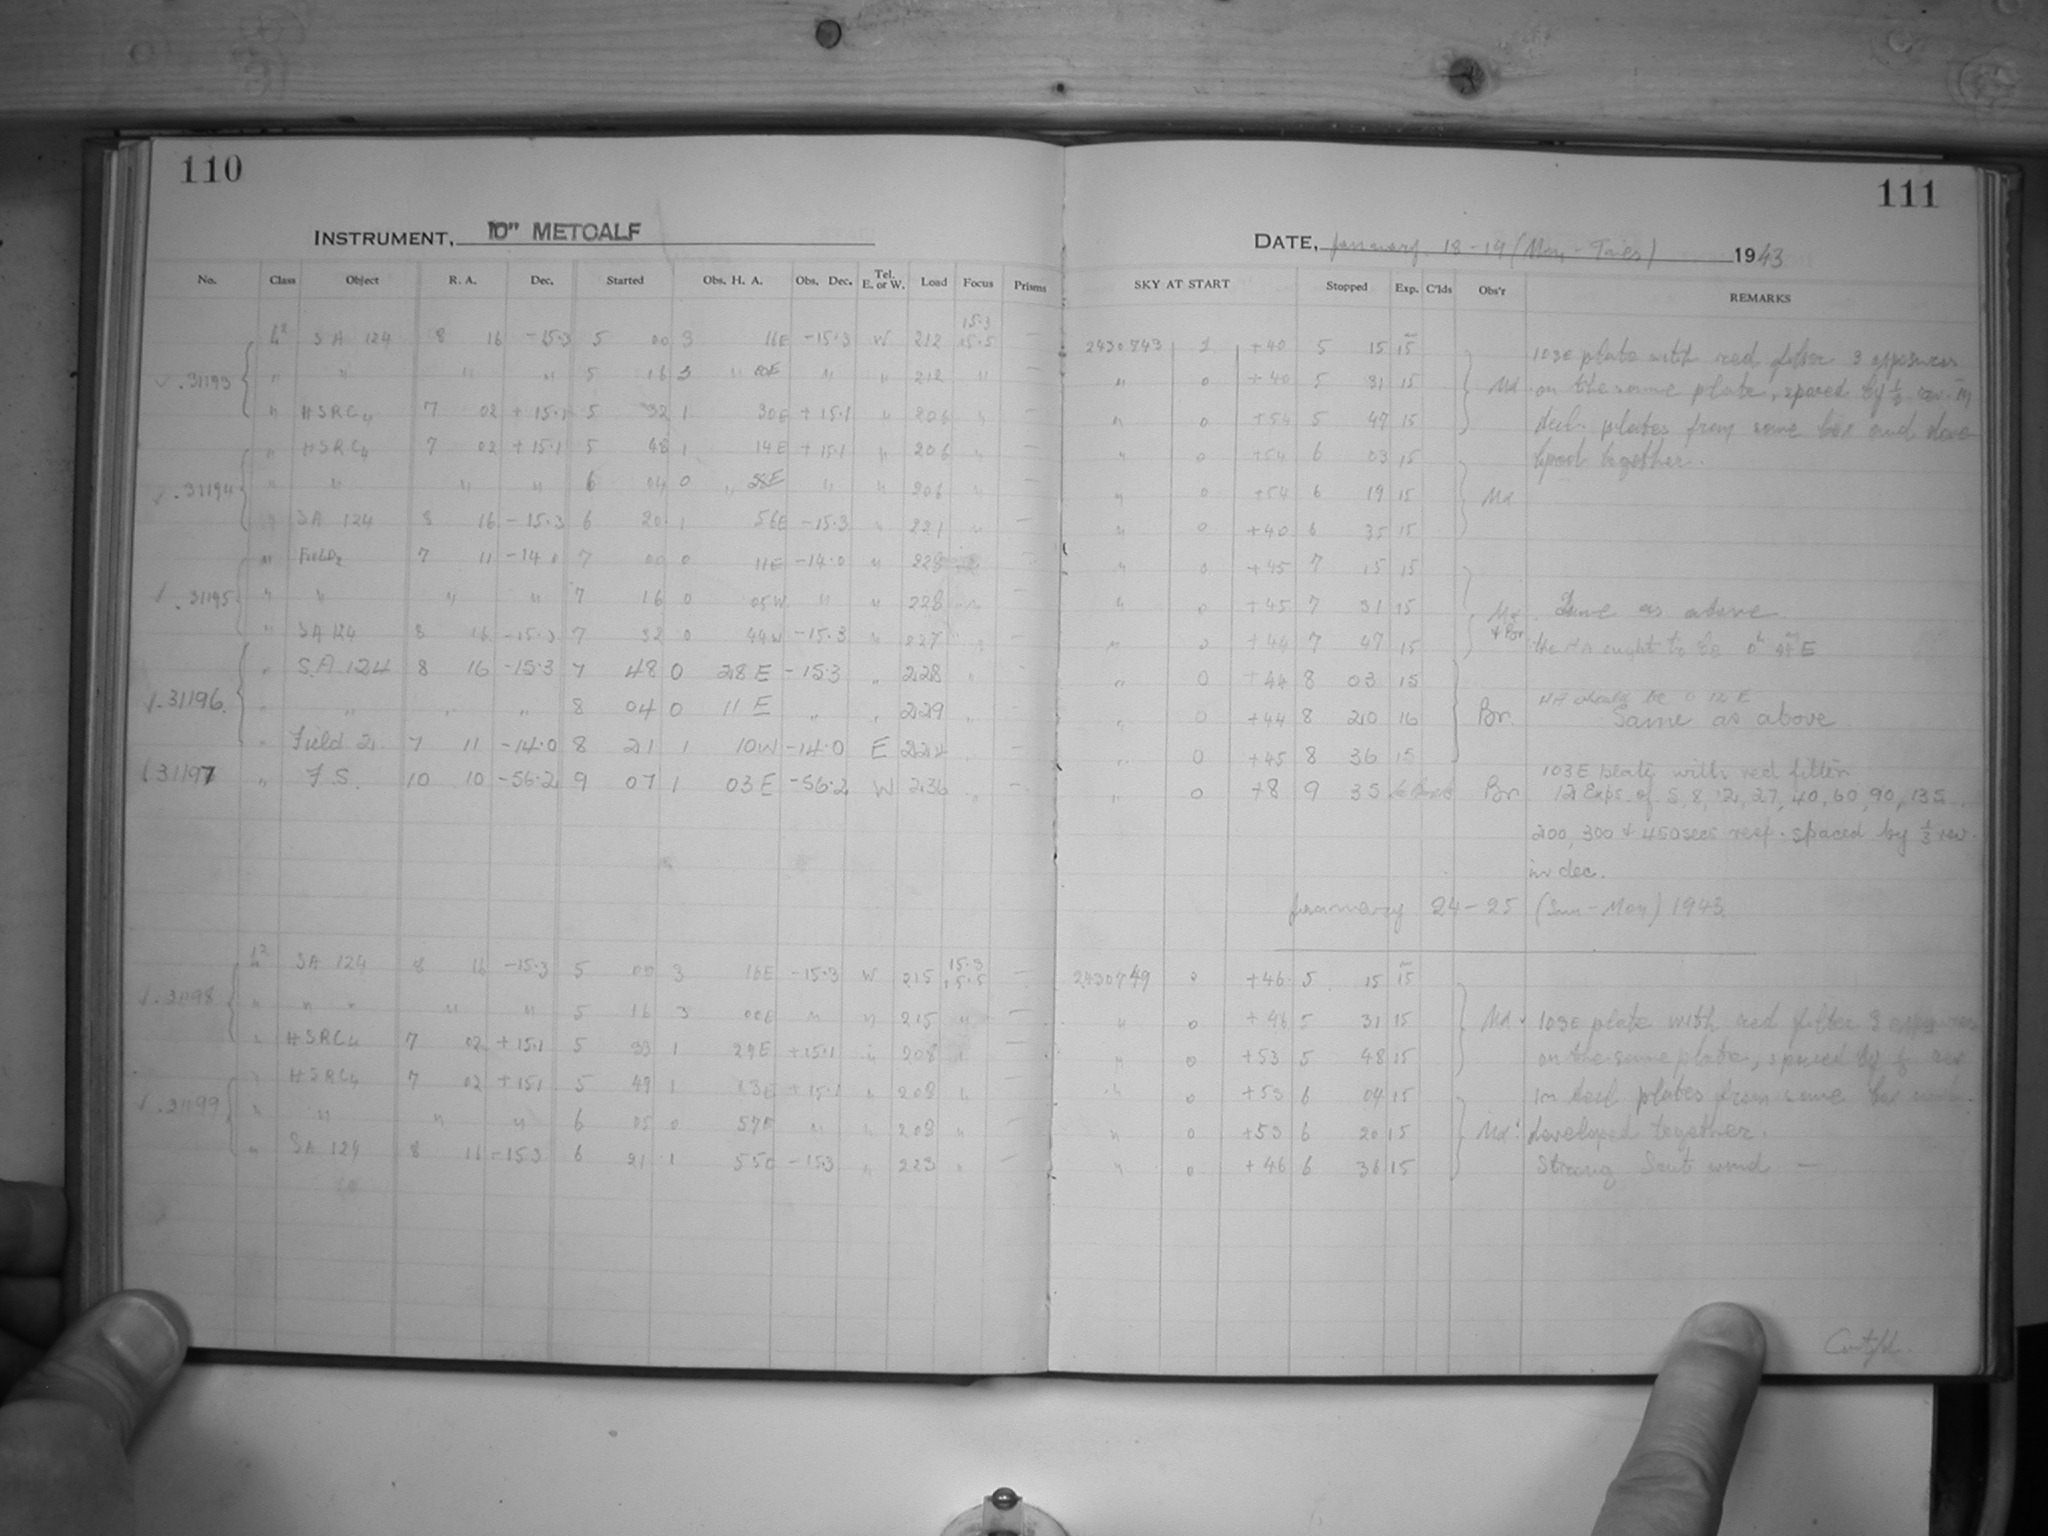 110
INSTRUMENT, 10" METCALF
No. Class Object R. A. Dec. Started Obs. H. A. Obs. Dec. Tel. E. or W. Load Focus Prisms
SA 124 8 16 -15.3 5 00 3 16E -15.3 W 212 15.3 15.5 —
.31193 " " " " 5 16 3 " 00E " " 212 " —
" HSRC4 7 02 +15.1 5 32 1 30E +15.1 " 206 " —
" HSRC4 7 02 +15.1 5 48 1 14E +15.1 " 206 " —
.31194 " " " " 6 04 0 " 58E " " 206 " —
" SA 124 8 16 -15.3 6 20 1 56E -15.3 " 221 " —
" Field2 7 11 -14.0 7 00 0 11E -14.0 " 228 —
.31195 " " " " 7 16 0 05W " " 228 " —
" SA 124 8 16 -15.3 7 32 0 44W -15.3 " 227 " —
" SA 124 8 16 -15.3 7 48 0 28E -15.3 " 228 " —
.31196 " " " " 8 04 0 11E " " 229 " —
" Field 2 7 11 -14.0 8 21 1 10W -14.0 E 224 " —
31197 " F.S. 10 10 -56.2 9 07 1 03E -56.2 W 236 " —
SA 124 8 16 -15.3 5 00 3 16E -15.3 W 215 15.3 15.5 —
.31198 " " " " " 5 16 3 00E " " 215 " —
" HSRC4 7 02 +15.1 5 33 1 29E +15.1 " 208 " —
" HSRC4 7 02 +15.1 5 49 1 13E +15.1 " 208 "
.31199 " " " " 6 05 0 57E " " 208 " —
" SA 124 8 16 -15.3 6 21 1 55E -15.3 " 223 " —
111
DATE, January 18-19 (Mon-Tues) 1943
SKY AT START Stopped Exp. C'lds Obs'r REMARKS
2430743 1 +40 5 15 15 103E plate with red filter 3 exposures
" 0 +40 5 31 15 Md on the same plate, spaced by 1/3 rev. in
" 0 +54 5 47 15 decl. plates from same box and deve-
" 0 +54 6 03 15 loped together.
" 0 +54 6 19 15 Md
" 0 +40 6 35 15
" 0 +45 7 15 15
" 0 +45 7 31 15 Md + Br Same as above
" 0 +44 7 47 15 the HA ought to be 0h E
" 0 +44 8 03 15
HA should be 0 12 E
" 0 +44 8 20 16 Br. Same as above
" 0 +45 8 36 15
103E plate with red filter
" 0 +8 9 35 Br 12 Exps. of 5, 8, 12, 27, 40, 60, 90, 135,
200, 300 & 450 secs resp. spaced by 1/3 rev.
in dec.
January 24-25 (Sun-Mon) 1943
2430749 0 +46 5 15 15
" 0 +46 5 31 15 Md 103E plate with red filter 3 exposures
" 0 +53 5 48 15 on the same plate, spaced by 1/3 rev
" 0 +53 6 04 15 in decl. plates from same box and
" 0 +53 6 20 15 Md developed together.
" 0 +46 6 36 15 Strong South wind —